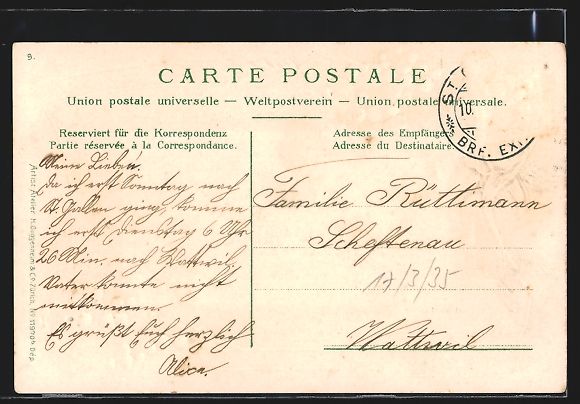 9.
CARTE POSTALE
Union postale universelle — Weltpostverein — Union postale universale.
ST.
10.
BRF. EXP.
Reserviert für die Korrespondenz
Partie réservée à la Correspondance.
Adresse des Empfängers
Adresse du Destinataire
Meine Lieben.
Da ich erst Sonntag nach
St. Gallen ging, komme
ich erst Dienstag 6 Uhr
26 Min. nach Wattwil.
Vater konnte nicht
mitkommen.
Es grüßt Euch herzlich
Alice.
Familie Rüttimann
Scheftenau
17/3/35
Wattwil
Artist. Atelier H. Guggenheim & Co. Zürich, No
Dép.